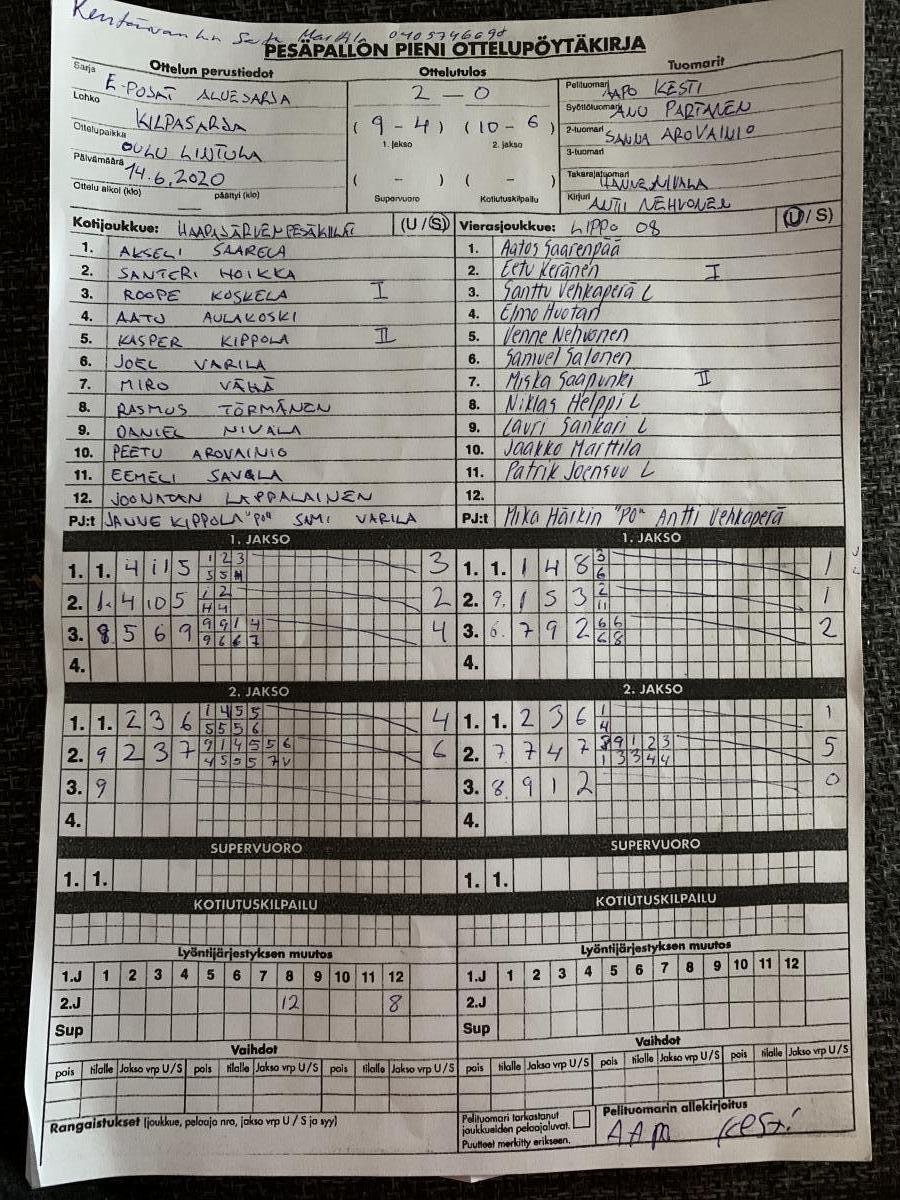 PESÄPALLON PIENI OTTELUPÖYTÄKIRJA
Ottelun perustiedot
Sarja E-POJAT ALUESARJA
Lohko KILPASARJA
Ottelupaikka OULU LINTULA
Päivämäärä 14.6.2020
Ottelu alkoi (klo) päättyi (klo)
Ottelutulos
2 - 0
( 9 - 4 ) ( 10 - 6 )
1. jakso 2. jakso
( - ) ( - )
Supervuoro Kotiutuskilpailu
Tuomarit
Pelituomari AAPO KESTI
Syöttötuomari ANU PARTANEN
2-tuomari SANNA AROVAINIO
3-tuomari
Takarajatuomari JANNE NIVALA
Kirjuri ANTTI NEHVONEN
Kotijoukkue: HAAPAJÄRVEN PESÄKIILAT (U / S)
1. AKSELI SAARELA
2. SANTERI HOIKKA
3. ROOPE KOSKELA I
4. AATU AULAKOSKI
5. KASPER KIPPOLA II
6. JOEL VARILA
7. MIRO VÄHÄ
8. RASMUS TÖRMÄNEN
9. DANIEL NIVALA
10. PEETU AROVAINIO
11. EEMELI SAVELA
12. JOONATAN LAPPALAINEN
PJ:t JANNE KIPPOLA "PO" SAMI VARILA
Vierasjoukkue: LIPPO 08 (U / S)
1. Aatos Saarenpää
2. Eetu Keränen I
3. Santtu Vehkaperä L
4. Elmo Huotari
5. Venne Nehvonen
6. Samuel Salonen
7. Miska Saapunki II
8. Niklas Helppi L
9. Lauri Sankari L
10. Jaakko Marttila
11. Patrik Joensuu L
12.
PJ:t Mika Härkin "PO" Antti Vehkaperä
1. JAKSO
1. 1. 4 11 5 1 2 3 3
5 5 H
2. 1. 4 10 5 1 2 2
H 4
3. 8 5 6 9 9 9 1 4 4
9 6 6 7
4.
1. JAKSO
1. 1. 1 4 8 3 1
6
2. 9. 1 5 3 2 1
11
3. 6. 7 9 2 6 6 2
6 8
4.
2. JAKSO
1. 1. 2 3 6 1 4 5 5 4
5 5 5 6
2. 9 2 3 7 9 1 4 5 5 6 6
4 5 5 5 7 V
3. 9
4.
2. JAKSO
1. 1. 2 3 6 1 1
4
2. 7 7 4 7 8 9 1 2 3 5
1 3 3 4 4
3. 8. 9 1 2 0
4.
SUPERVUORO
1. 1.
SUPERVUORO
1. 1.
KOTIUTUSKILPAILU
KOTIUTUSKILPAILU
Lyöntijärjestyksen muutos
1.J 1 2 3 4 5 6 7 8 9 10 11 12
2.J 12 8
Sup
Lyöntijärjestyksen muutos
1.J 1 2 3 4 5 6 7 8 9 10 11 12
2.J
Sup
Vaihdot
pois tilalle Jakso vrp U / S pois tilalle Jakso vrp U / S pois tilalle Jakso vrp U / S
Vaihdot
pois tilalle Jakso vrp U / S pois tilalle Jakso vrp U / S pois tilalle Jakso vrp U / S
Rangaistukset (joukkue, pelaaja nro, jakso vrp U / S ja syy)
Pelituomari tarkastanut
joukkueiden pelaajaluvat.
Puutteet merkitty erikseen.
Pelituomarin allekirjoitus
AAPO KESTI